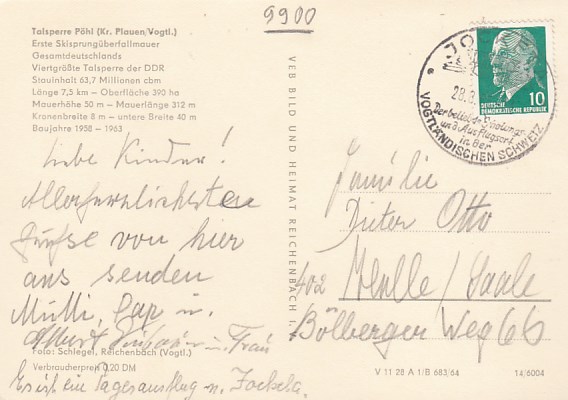 9900
Talsperre Pöhl (Kr. Plauen/Vogtl.)
Erste Skisprungüberfallmauer
Gesamtdeutschlands
Viertgrößte Talsperre der DDR
Stauinhalt 63,7 Millionen cbm
Länge 7,5 km – Oberfläche 390 ha
Mauerhöhe 50 m – Mauerlänge 312 m
Kronenbreite 8 m – untere Breite 40 m
Baujahre 1958 – 1963
Liebe Kinder!
Allerherzlichsten
Grüße von hier
aus senden
Mutti,
Albert u. Frau
Foto: Schlegel, Reichenbach (Vogtl.)
Verbraucherpreis 0,20 DM
Es ist ein Tagesausflug n. Jocketa.
VEB BILD UND HEIMAT REICHENBACH I. V.
JOCKE
28.3.
Der beliebte Siedlungs-
und Ausflugsort
in der
VOGTLÄNDISCHEN SCHWEIZ
DEUTSCHE
DEMOKRATISCHE REPUBLIK
10
Familie
Dieter Otto
402 Halle/Saale
Bölberger Weg 66
V 11 28 A 1/B 683/64
14/6004